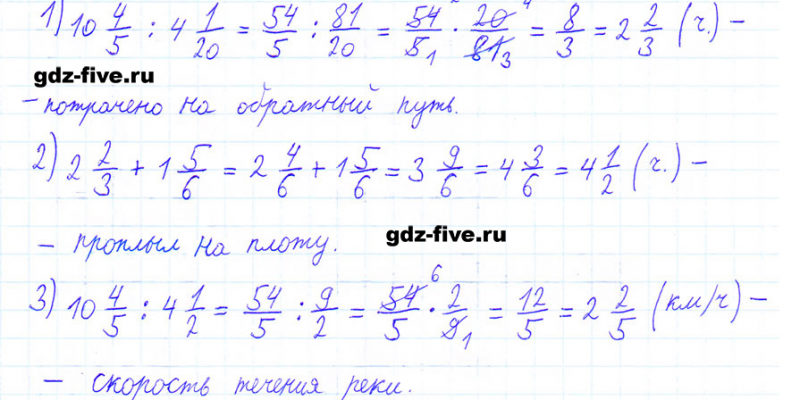 1) 10 4/5 : 4 1/20 = 54/5 : 81/20 = 54/5₁ · 20⁴/81₃ = 8/3 = 2 2/3 (ч.) –
gdz-five.ru
– потрачено на обратный путь.
2) 2 2/3 + 1 5/6 = 2 4/6 + 1 5/6 = 3 9/6 = 4 3/6 = 4 1/2 (ч.) –
– проплыл на плоту.
gdz-five.ru
3) 10 4/5 : 4 1/2 = 54/5 : 9/2 = 54⁶/5 · 2/9₁ = 12/5 = 2 2/5 (км/ч) –
– скорость течения реки.